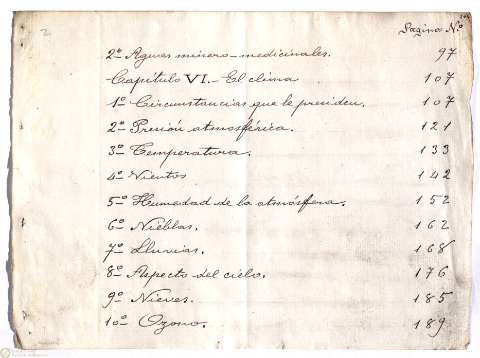 2
Pagina Nº
2º Aguas minero-medicinales. 97
Capítulo VI.- El clima 107
1º Circunstancias que le presiden. 107
2º Presión atmosférica. 121
3º Temperatura. 133
4º Vientos 142
5º Humedad de la atmósfera. 152
6º Nieblas. 162
7º Lluvias. 168
8º Aspecto del cielo. 176
9º Nieves. 185
10º Ozono. 189